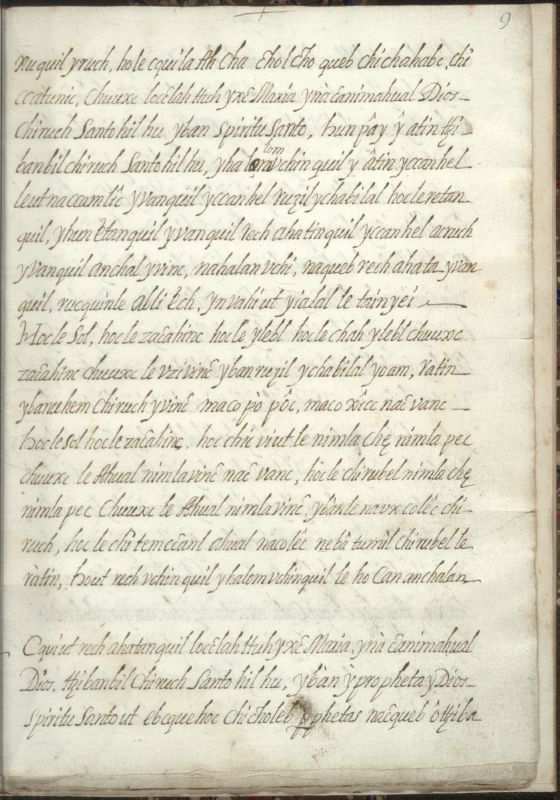 9
xuquil yruch, hole cquila Ah Cha chol cho queb chi chahabc, chi
ccatunic, Chuuxc locēlah Huh yxē Maria ynācanimahual Dios
Chiruch Santo hil hu yban spiritu santo, hun pây ŷ atin tzi
banbil chiruch Santo hil hu, yha lom vchin quil y âtin yccanhel
leut naccamtic yvanquil yccanhel ruzilychabilal hocleretan
quil, yhunētanquil yvanquil rech ahatinquil yccanhel aruch
yvanquil anchal yvinc, nahalan vchi, naqueb rech ahata yvan
queil, rucquinle abli ēch, ynvahi ut yialal le tainyei
Hocle Sol, hocle zacahinc hocle ylebl hocle chah ylebl chuuxc
zacahinc chuuxc le vzivinc yban ruzil ychabilal yoam, ratin
ybanuhem chiruch yvinc maco pò pôc, maco xicc nac vanc
hocle sol hocle zacahinc, hoc chic viut le nimla che nimla pec
chuuxc le Ahual nimla vinc nac vanc, hocle chirubel nimla che
nimla pec Chuuxc le Ahual nimla vinc, ybante navx colēc chi
ruch, hocle chi temccānl ahual nacolēc nebâ tumil chirubel le
ràtin, hout rech vchin quil yhalom vchinquil le ho Can anchalan
Cquiut rech ahatanquil locēlah Huh yxē Maria, ynà canimahual
Dios, tzibanbil Chiruch Santo hil hu, ybàn ỳ propheta y Dios
spiritu Santo ut ebcquehoc chicholeb pphetas nacqueb ôtziba